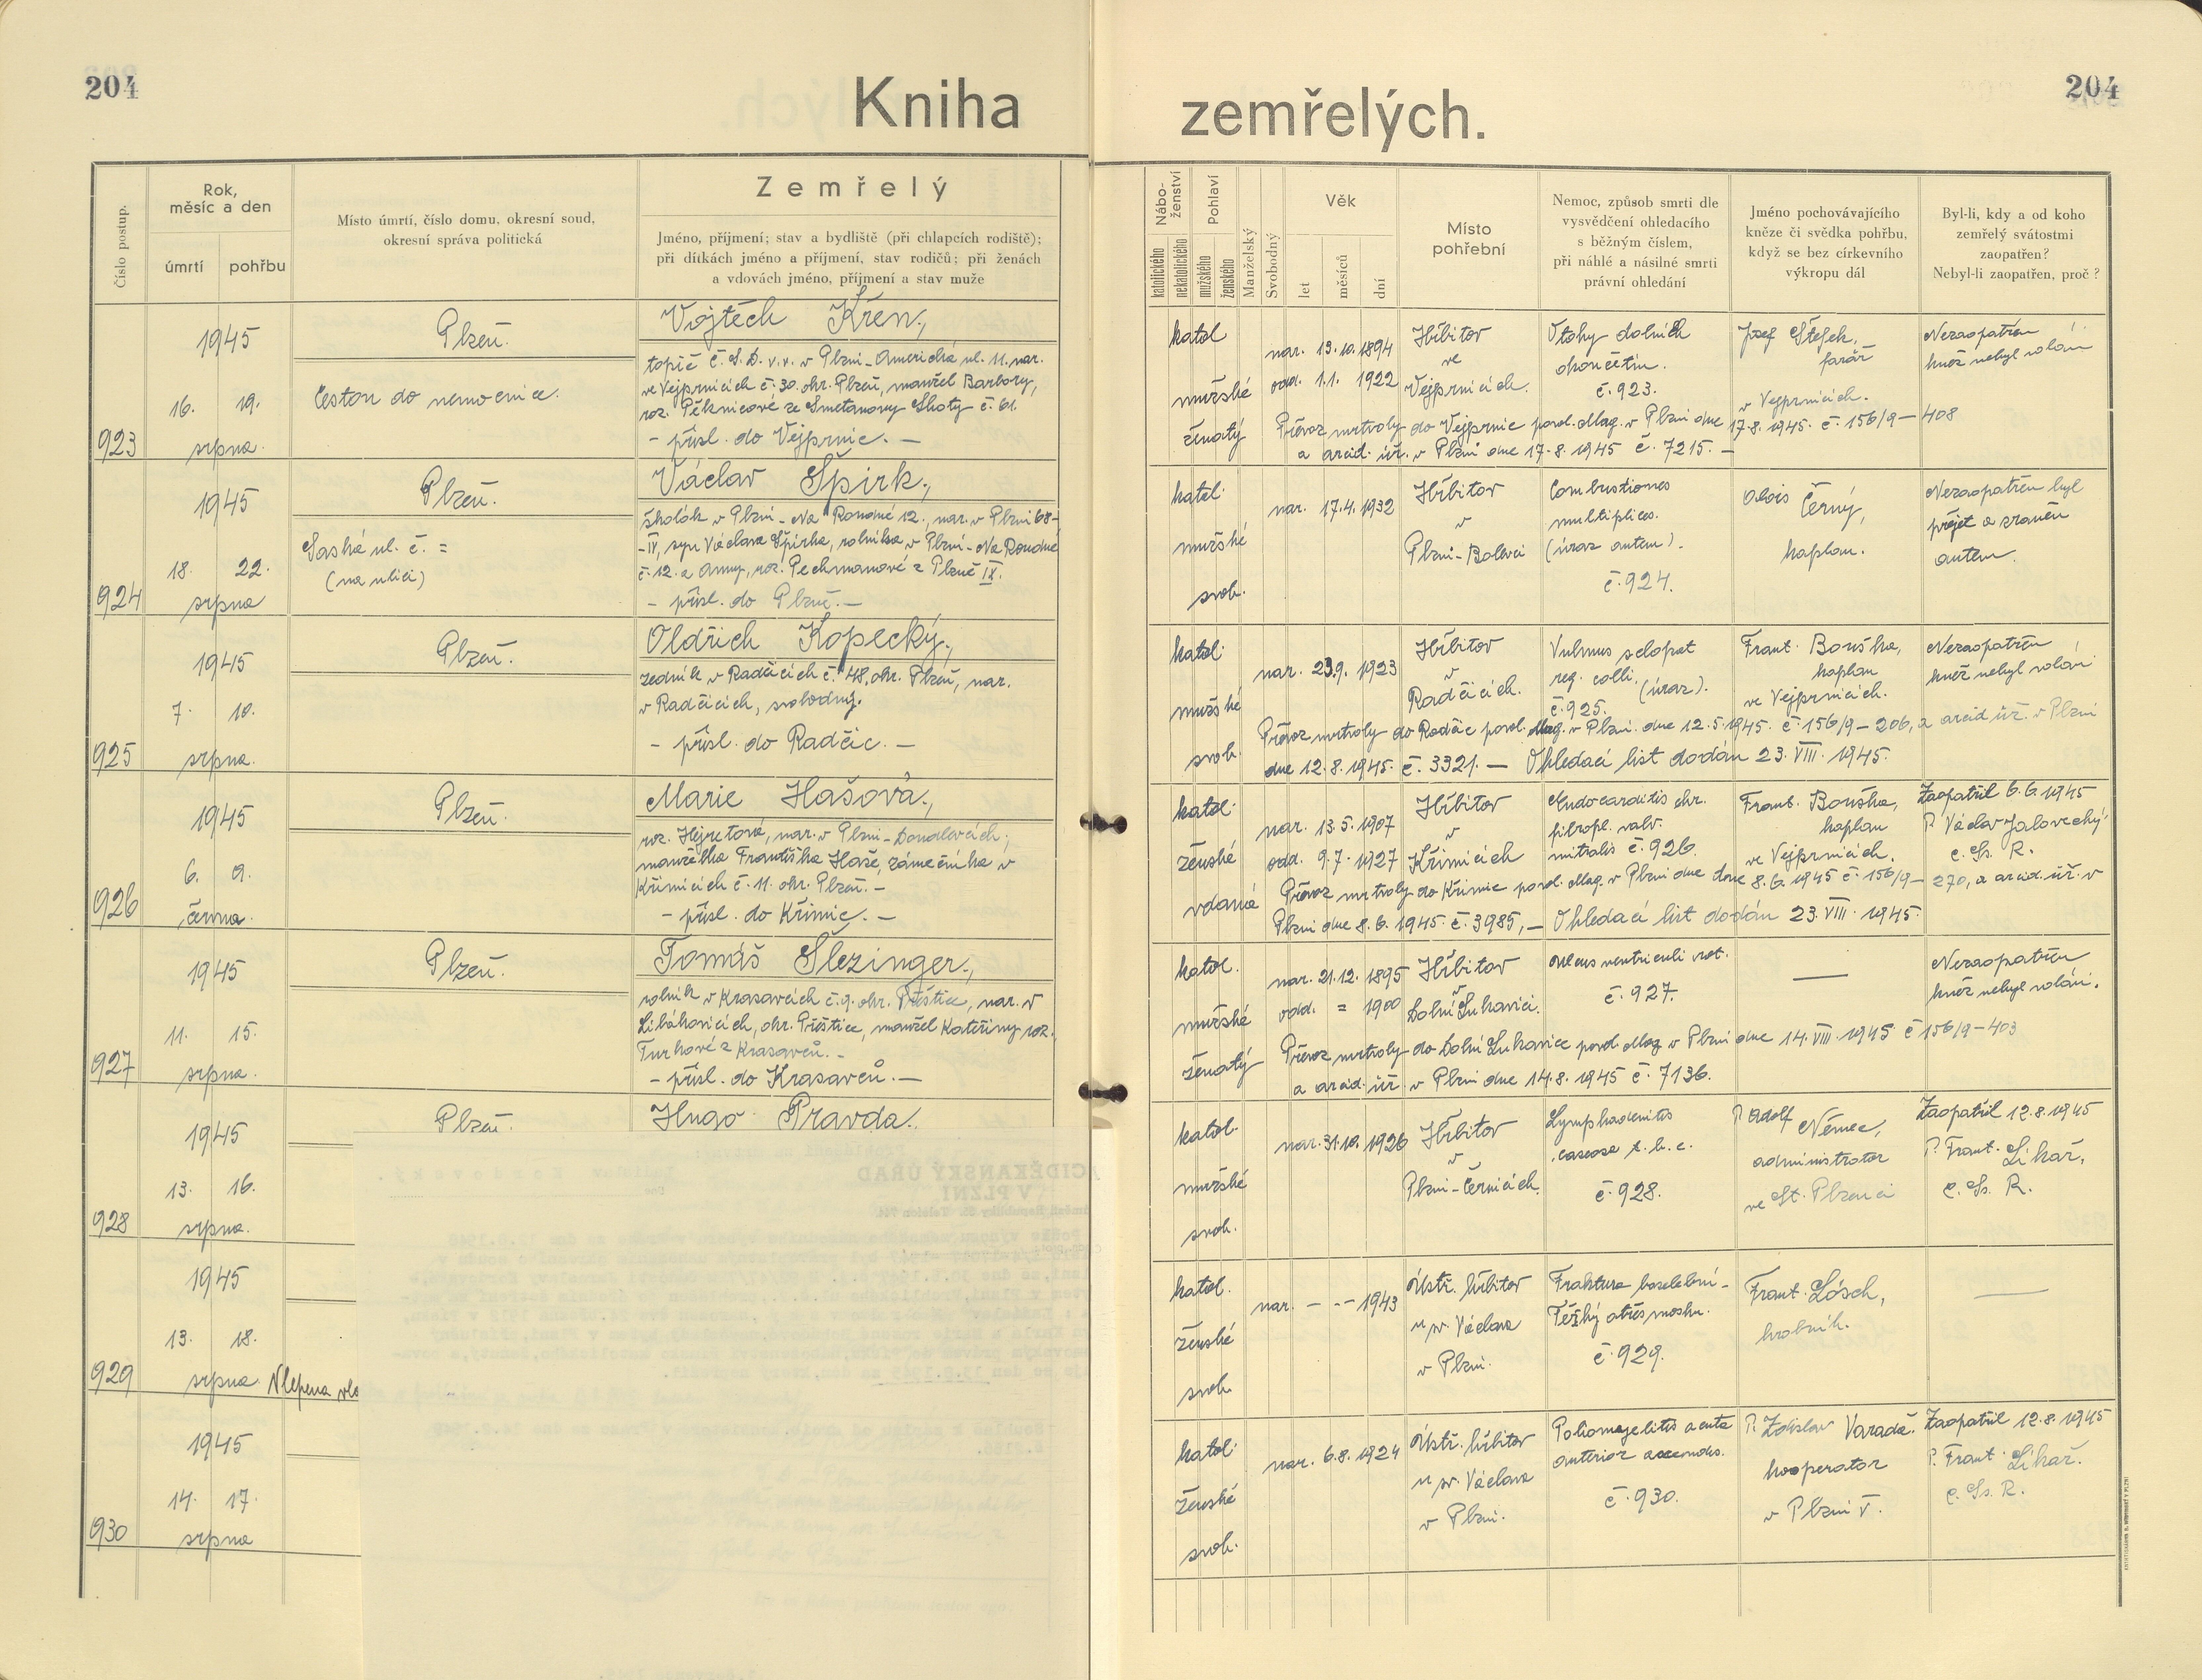 204
Kniha
zemřelých.
204
Číslo postup.
Rok,
měsíc a den
úmrtí
pohřbu
Místo úmrtí, číslo domu, okresní soud,
okresní správa politická
Zemřelý
Jméno, příjmení; stav a bydliště (při chlapcích rodiště);
při dítkách jméno a příjmení, stav rodičů; při ženách
a vdovách jméno, příjmení a stav muže
Nábo-
ženství
katolického
nekatolického
Pohlaví
mužského
ženského
Manželský
Svobodný
Věk
let
měsíců
dní
Místo
pohřební
Nemoc, způsob smrti dle
vysvědčení ohledacího
s běžným číslem,
při náhlé a násilné smrti
právní ohledání
Jméno pochovávajícího
kněze či svědka pohřbu,
když se bez církevního
výkropu dál
Byl-li, kdy a od koho
zemřelý svátostmi
zaopatřen?
Nebyl-li zaopatřen, proč?
923
1945
16. 19.
srpna.
Plzeň.
Cestou do nemocnice.
Vojtěch Křen,
topič Č.S.D. v.v. v Plzni-Americká ul. 11. nar.
ve Vejprnicích č. 30. okr. Plzeň, manžel Barbory,
roz. Pěknicové ze Smetanovy Lhoty č. 61.
- přísl. do Vejprnic. -
katol
mužské
ženatý
nar. 13.10.1894
odd. 1.1. 1922
Hřbitov
ve
Vejprnicích.
Otoky dolních
končetin.
č. 923.
Josef Štefek,
farář
v Vejprnicích.
Nezaopatřen
kněz nebyl volán
Převoz mrtvoly do Vejprnic povol. Mag. v Plzni dne 17.8.1945. č. 156/9-408
a arcid. úř. v Plzni dne 17.8.1945 č. 7215. -
924
1945
18. 22.
srpna
Plzeň.
Saská ul. č. =
(na ulici)
Václav Špirk,
školák v Plzni-Na Roudné 12., nar. v Plzni 68-
-IV, syn Václava Špirka, rolníka v Plzni-Na Roudné
č. 12. a Anny, roz. Pechmanové z Plzně IX.
- přísl. do Plzně. -
katol.
mužské
svob.
nar. 17.4. 1932
Hřbitov
v
Plzni-Bolevci
Combustiones
multiplices.
(úraz autem).
č. 924.
Alois Černý,
kaplan.
Nezaopatřen byl
přejet a zraněn
autem.
925
1945
7. 10.
srpna.
Plzeň.
Oldřich Kopecký,
zedník v Radčicích č. 48. okr. Plzeň, nar.
v Radčicích, svobodný.
- přísl. do Radčic. -
katol.
mužské
svob.
nar. 23.9. 1923
Hřbitov
v
Radčicích.
Vulnus sclopet
reg. colli. (úraz).
č. 925.
Frant. Bouška,
kaplan
ve Vejprnicích.
Nezaopatřen
kněz nebyl volán
Převoz mrtvoly do Radčic povol. Mag. v Plzni dne 12.5.1945. č. 156/9-206, a arcid úř. v Plzni
dne 12.8.1945. č. 3321. - Ohledací list dodán 23. VIII. 1945.
926
1945
6. 9.
června.
Plzeň.
Marie Hašová,
roz. Hejretová, nar. v Plzni-Doudlevcích;
manželka Františka Haše, zámečníka v
Křimicích č. 11. okr. Plzeň. -
- přísl. do Křimic. -
katol.
ženské
vdaná
nar. 13.5. 1907
odd. 9.7. 1927
Hřbitov
v
Křimicích
Endocarditis chr.
fibropl. valv.
mitralis č. 926.
Frant. Bouška,
kaplan
ve Vejprnicích.
Zaopatřil 6.6.1945
P. Václav Jalovecký
C. Ss. R.
Převoz mrtvoly do Křimic povol. Mag. v Plzni dne dne 8.6.1945 č. 156/9-270, a arcid. úř. v
Plzni dne 8.6.1945. č. 3985, - Ohledací list dodán 23. VIII. 1945.
927
1945
11. 15.
srpna.
Plzeň.
Tomáš Šlezinger,
rolník v Krasavcích č. 9. okr. Přeštice, nar. v
Libákovicích, okr. Přeštice, manžel Kateřiny roz.
Turkové z Krasavců. -
- přísl. do Krasavců. -
katol.
mužské
ženatý
nar. 21.12. 1895
odd. = 1900
Hřbitov
v
Dolní Lukavici.
Ulcus ventriculi rot.
č. 927.
—
Nezaopatřen
kněz nebyl volán.
Převoz mrtvoly do Dolní Lukavice povol. Mag v Plzni dne 14. VIII. 1945 č 156/9-403
a arcid. úř. v Plzni dne 14.8. 1945 č. 7136.
928
1945
13. 16.
srpna.
Plzeň.
Hugo Pravda.
katol.
mužské
svob.
nar. 31.10. 1926
Hřbitov
v
Plzni-Černicích.
Lymphadenitis
caseosa t.b.c.
č. 928.
P. Adolf Němec,
administrator
ve St. Plzenci
Zaopatřil 12.8.1945
P. Frant. Likař,
C. Ss. R.
929
1945
13. 18.
srpna.
Vlepena vlo
katol.
ženské
svob.
nar. - -- 1943
Ústř. hřbitov
u sv. Václava
v Plzni.
Fraktura base lební-
Těžký otřes mozku.
č. 929.
Frant. Lösch,
hrobník.
—
930
1945
14. 17.
srpna
katol.
ženské
svob.
nar. 6.8. 1924
Ústř. hřbitov
u sv. Václava
v Plzni.
Poliomyelitis acuta
anterior ascendes.
č. 930.
P. Zdislav Varadě.
kooperator
v Plzni V.
Zaopatřil 12.8.1945
P. Frant. Likař.
C. Ss. R.